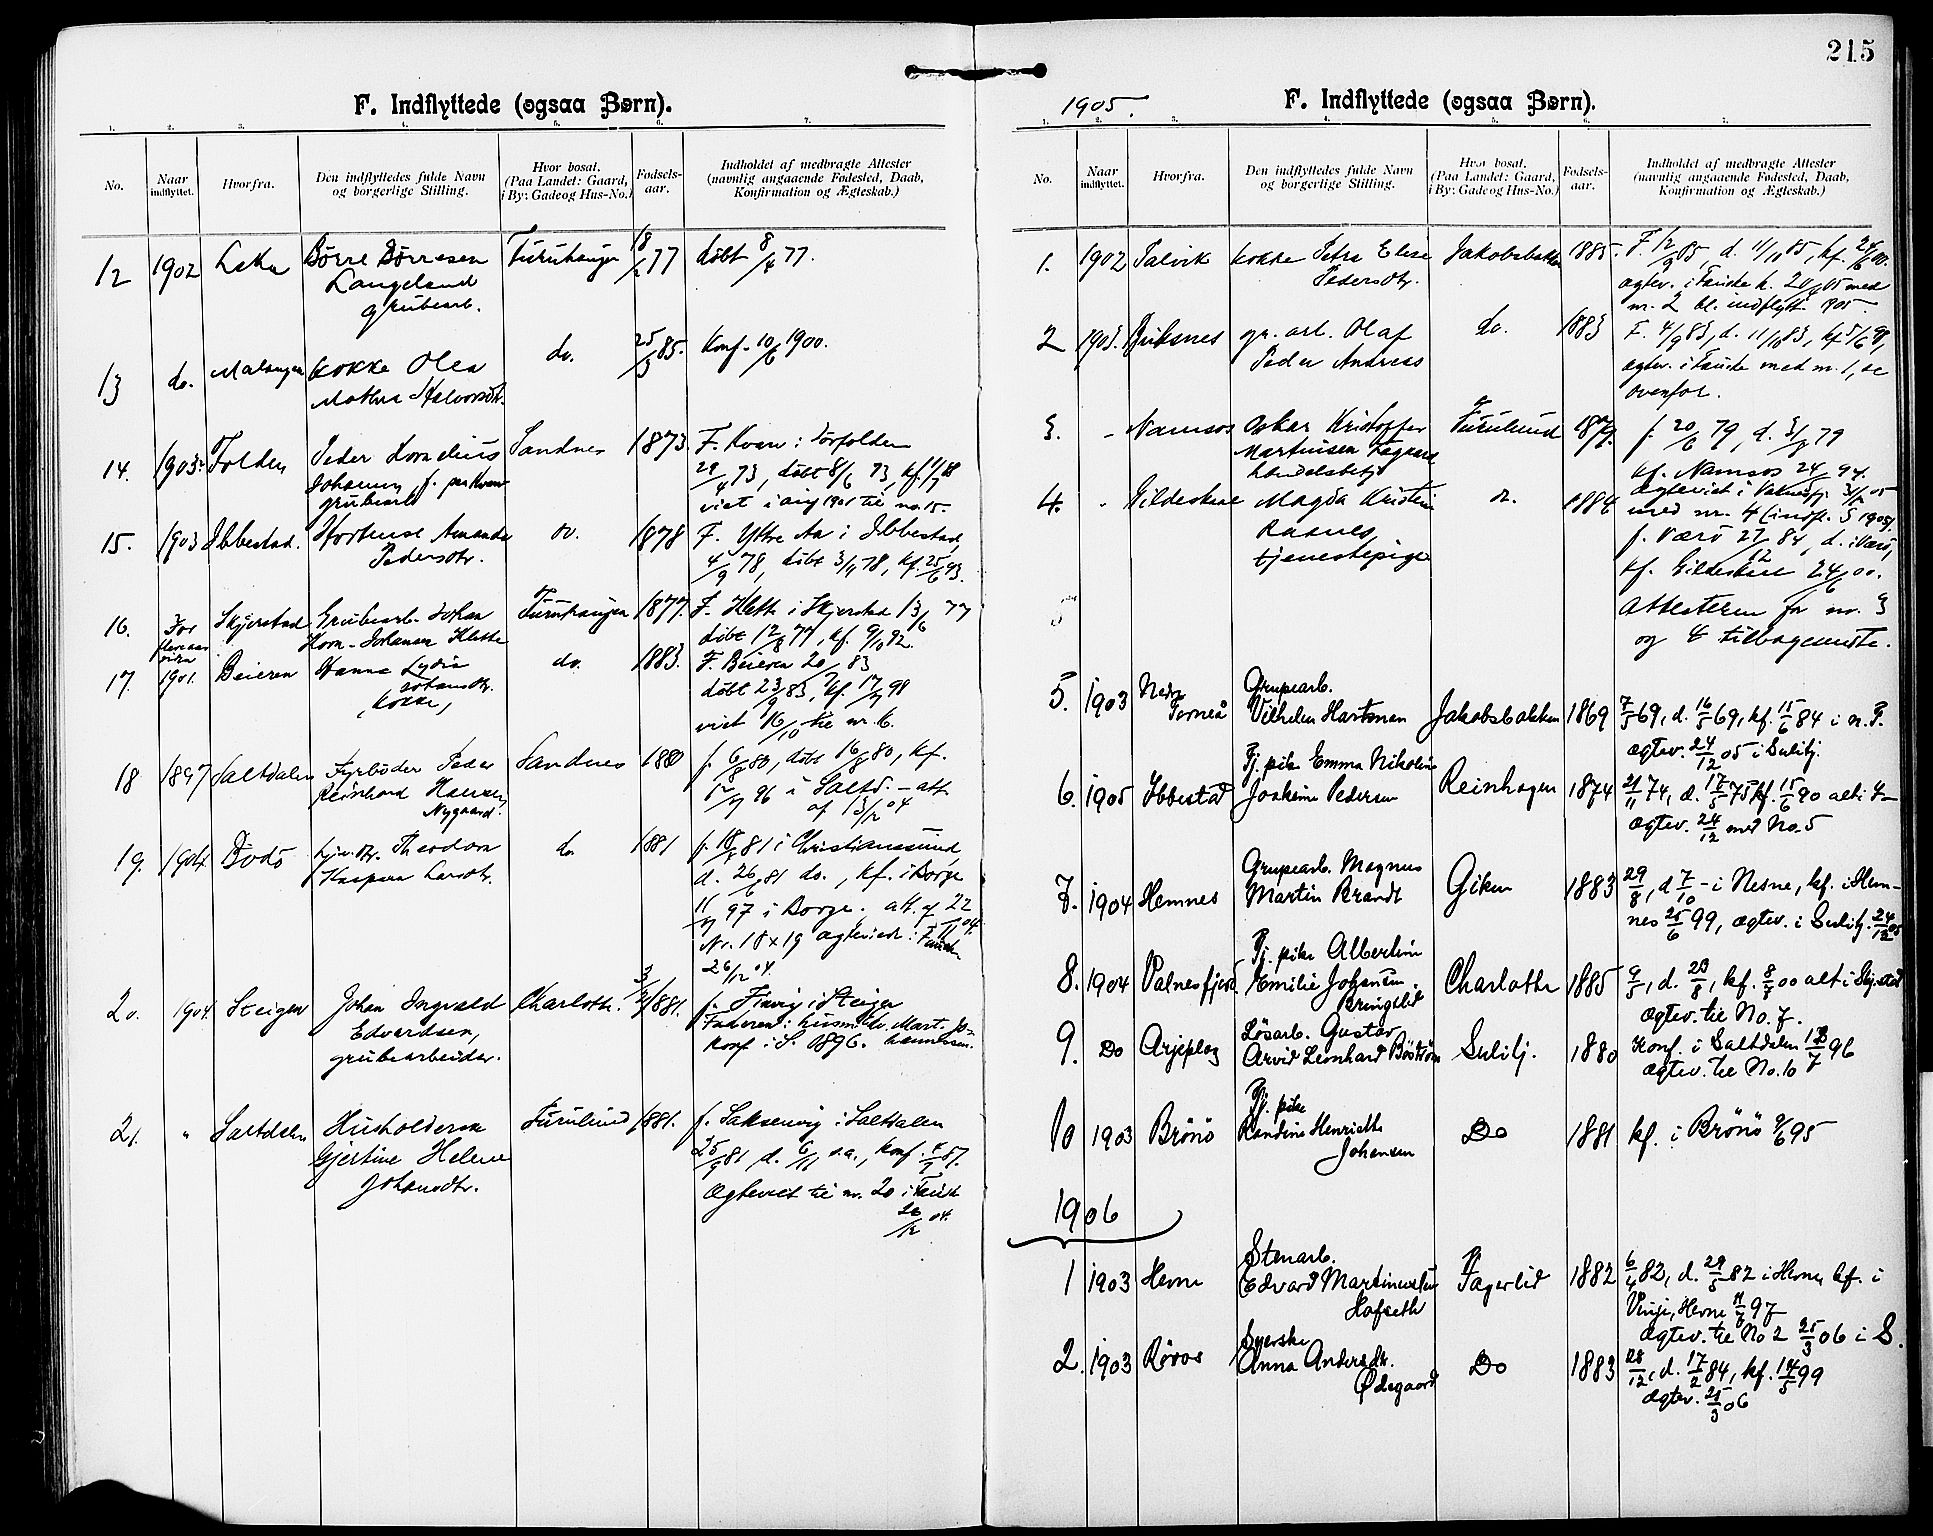 F. Indflyttede (ogsaa Børn).
1. 2. 3. 4. 5. 6. 7.
No. Naar indflyttet. Hvorfra. Den indflyttedes fulde Navn og borgerlige Stilling. Hvor bosat. (Paa Landet: Gaard, i By: Gade og Hus-No.) Fødsels-aar. Indholdet af medbragte Attester (navnlig angaaende Fødested, Daab, Konfirmation og Ægteskab.)
12 1902 Børre Børresen Furuhaugen 18/2 77 døbt 8/4 77.
Langeland
grubearb.
13 do. Malangen kokke Olea do. 25/3 85. Konf. 10/6 1900.
14. 1903. Folden Peder Kornelius Sandnes 1873. F. Kvan i Sørfolden
Johansen, f. paa Kvan 29/4 73, døbt 8/6 73, kf.
grubearb. viet i aug 1901 til no. 15.
15. 1903 Ibbestad. Hortense Amanda do. 1878 F. Yttre Aa i Ibbestad,
Pedersdtr. 4/9 78, døbt 3/11 78, kf. 25/6 93.
16. For Skjerstad Grubearb. Johan Furuhaugen 1877. F. Klette i Skjerstad 13/6 77
flere aar Korn. Johansen Klette døbt 12/8 77, kf. 9/10 92.
siden
17. 1901. Beieren Hanna Lydia do. 1883. F. Beieren 20/7 83
Johansdtr. døbt 23/9 83, kf. 17/7 98
kokke, viet 16/10 til nr. 16.
18 1897 Saltdalen Fyrbøder Peder Sandnes 1880 f. 6/8 80, døbt 16/8 80, kf.
Reinhard Hansen 12/7 96 i Saltd. - att.
Nygaard. af 13/12 04
19. 1904 Bodö Theodora do. 1881 f. 18/4 81 i Christianssund,
Kaspara Larsdtr. d. 26/6 81 do., kf. i Borge
11/7 97 i Borge. att. af 22/11 04.
Nr. 18 x 19 ægteviede i Fauske
26/12 04.
20. 1904. Steigen Johan Ingvald Charlotta. 3/4 1881. f. i Steigen
Edvardsen, Faderen: husm. Edv. Mart. Jo-
grubearbeider. Konf i S. 1896. hannesen.
21. " Saltdalen Husholderske Furulund 1881. f. Saksenvig i Saltdalen
Gjertine Helene 25/9 81 d. 6/11 s.a., konf.
Johansdtr. Ægteviet til nr. 20 i Fausk
26/12 04.
215
1905.
F. Indflyttede (ogsaa Børn).
1. 2. 3. 4. 5. 6. 7.
No. Naar indflyttet. Hvorfra. Den indflyttedes fulde Navn og borgerlige Stilling. Hvor bosat. (Paa Landet: Gaard, i By: Gade og Hus-No.) Fødsels-aar. Indholdet af medbragte Attester (navnlig angaaende Fødested, Daab, Konfirmation og Ægteskab.)
1. 1902 Talvik kokke Petra Elise Jakobsbakken 1885. F. 12/9 85, d. 1/11 85, kf. 24/6 00.
Pedersdtr. ægtev. i Fauske k. 05 med
nr. 2 bl. indflytt. 905.
2 1903. gr. arb. Olaf do. 1883 F. 4/9 83, d. 11/11 83, kf. 5/6 98,
Peder Andreas ægtev. i Fauske med nr. 1, se
ovenfor.
3. - Namsos Oskar Kristoffer Furulund 1879. f. 20/6 79, d. 3/8 79
Martinsen kf. Namsos 24/9 94.
handelsbetj. ægteviet i 3/12 05
4. - Gildeskaal Magda Kristin do. 1884 med nr. 4 (indfl. 5 1905).
f. Værö 27/12 84, d. i Værö,
tjenestepige kf. Gildeskaal 24/6 00.
Attesterne for nr. 3
og 4 tilbagesendte.
5. 1903 Nedr. Grubearb. Jakobsbakken 1869 7/5 69, d. 16/5 69, kf. 15/6 84 i n. T.
Torneå Vilhelm Hartman ægtev. 24/12 05 i Sulitj.
6. 1905 Ibbestad Tj. pike Emma Nikoline Reinhagen 1874 21/11 74, d. 17/5 75 kf. 15/6 90 alt i I-
Joakime Pedersen ægtev. 24/12 med No. 5
7. 1904 Hemnes Grubearb. Magnus Giken 1883 29/8, d 7/10 - i Nesne, kf. i Hem-
Martin Brandt nes 25/6 99, ægtev. i Sulitj. 24/12 05
8. 1904 Valnesfjord Tj. pike Albertine Charlotta 1885 9/5, d. 23/8, kf. 8/7 00 alt i Skjerstad
Emilie Johansen. ægtev. til No. 7.
Kringelid
9. Do Arjeplog Løsarb. Gustav Sulitj. 1880 Konf. i Saltdalen 13/7 96
Arvid Leonhard Böström ægtev. til No. 10
10 1903 Brönö Tj. pike Do 1881 kf. i Brönö 9/6 95
Randine Henriette
Johansen
1906
1 1903 Hevne Stenarb. Fagerlid 1882 6/4 82, d. 29/5 82 i Hevne, kf. i
Edvard Martinusen Vinje, Hevne 11/7 97
Hafseth ægtev. til No 2 25/3 06 i S.
2. 1903 Røros Syerske Do 1883 28/12, d. 17/2 84, kf. 14/5 99
Anna Andersdtr. ægtev. 25/3 06
Ødegaard